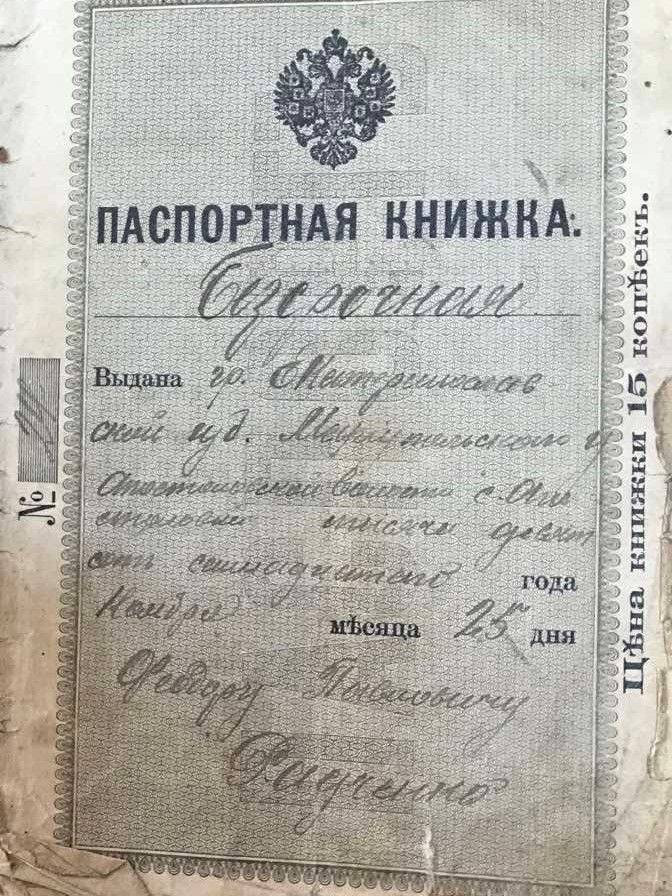 ПАСПОРТНАЯ КНИЖКА.
Безсрочная
Выдана гр. Екатеринослав
ской губ. Мариупольского у
волости с. Апо
столовки тысяча девят
сотъ семнадцатаго года
Ноября мѣсяца 25 дня
Феодору Павловичу
Радченко
№
Цѣна книжки 15 копѣекъ.